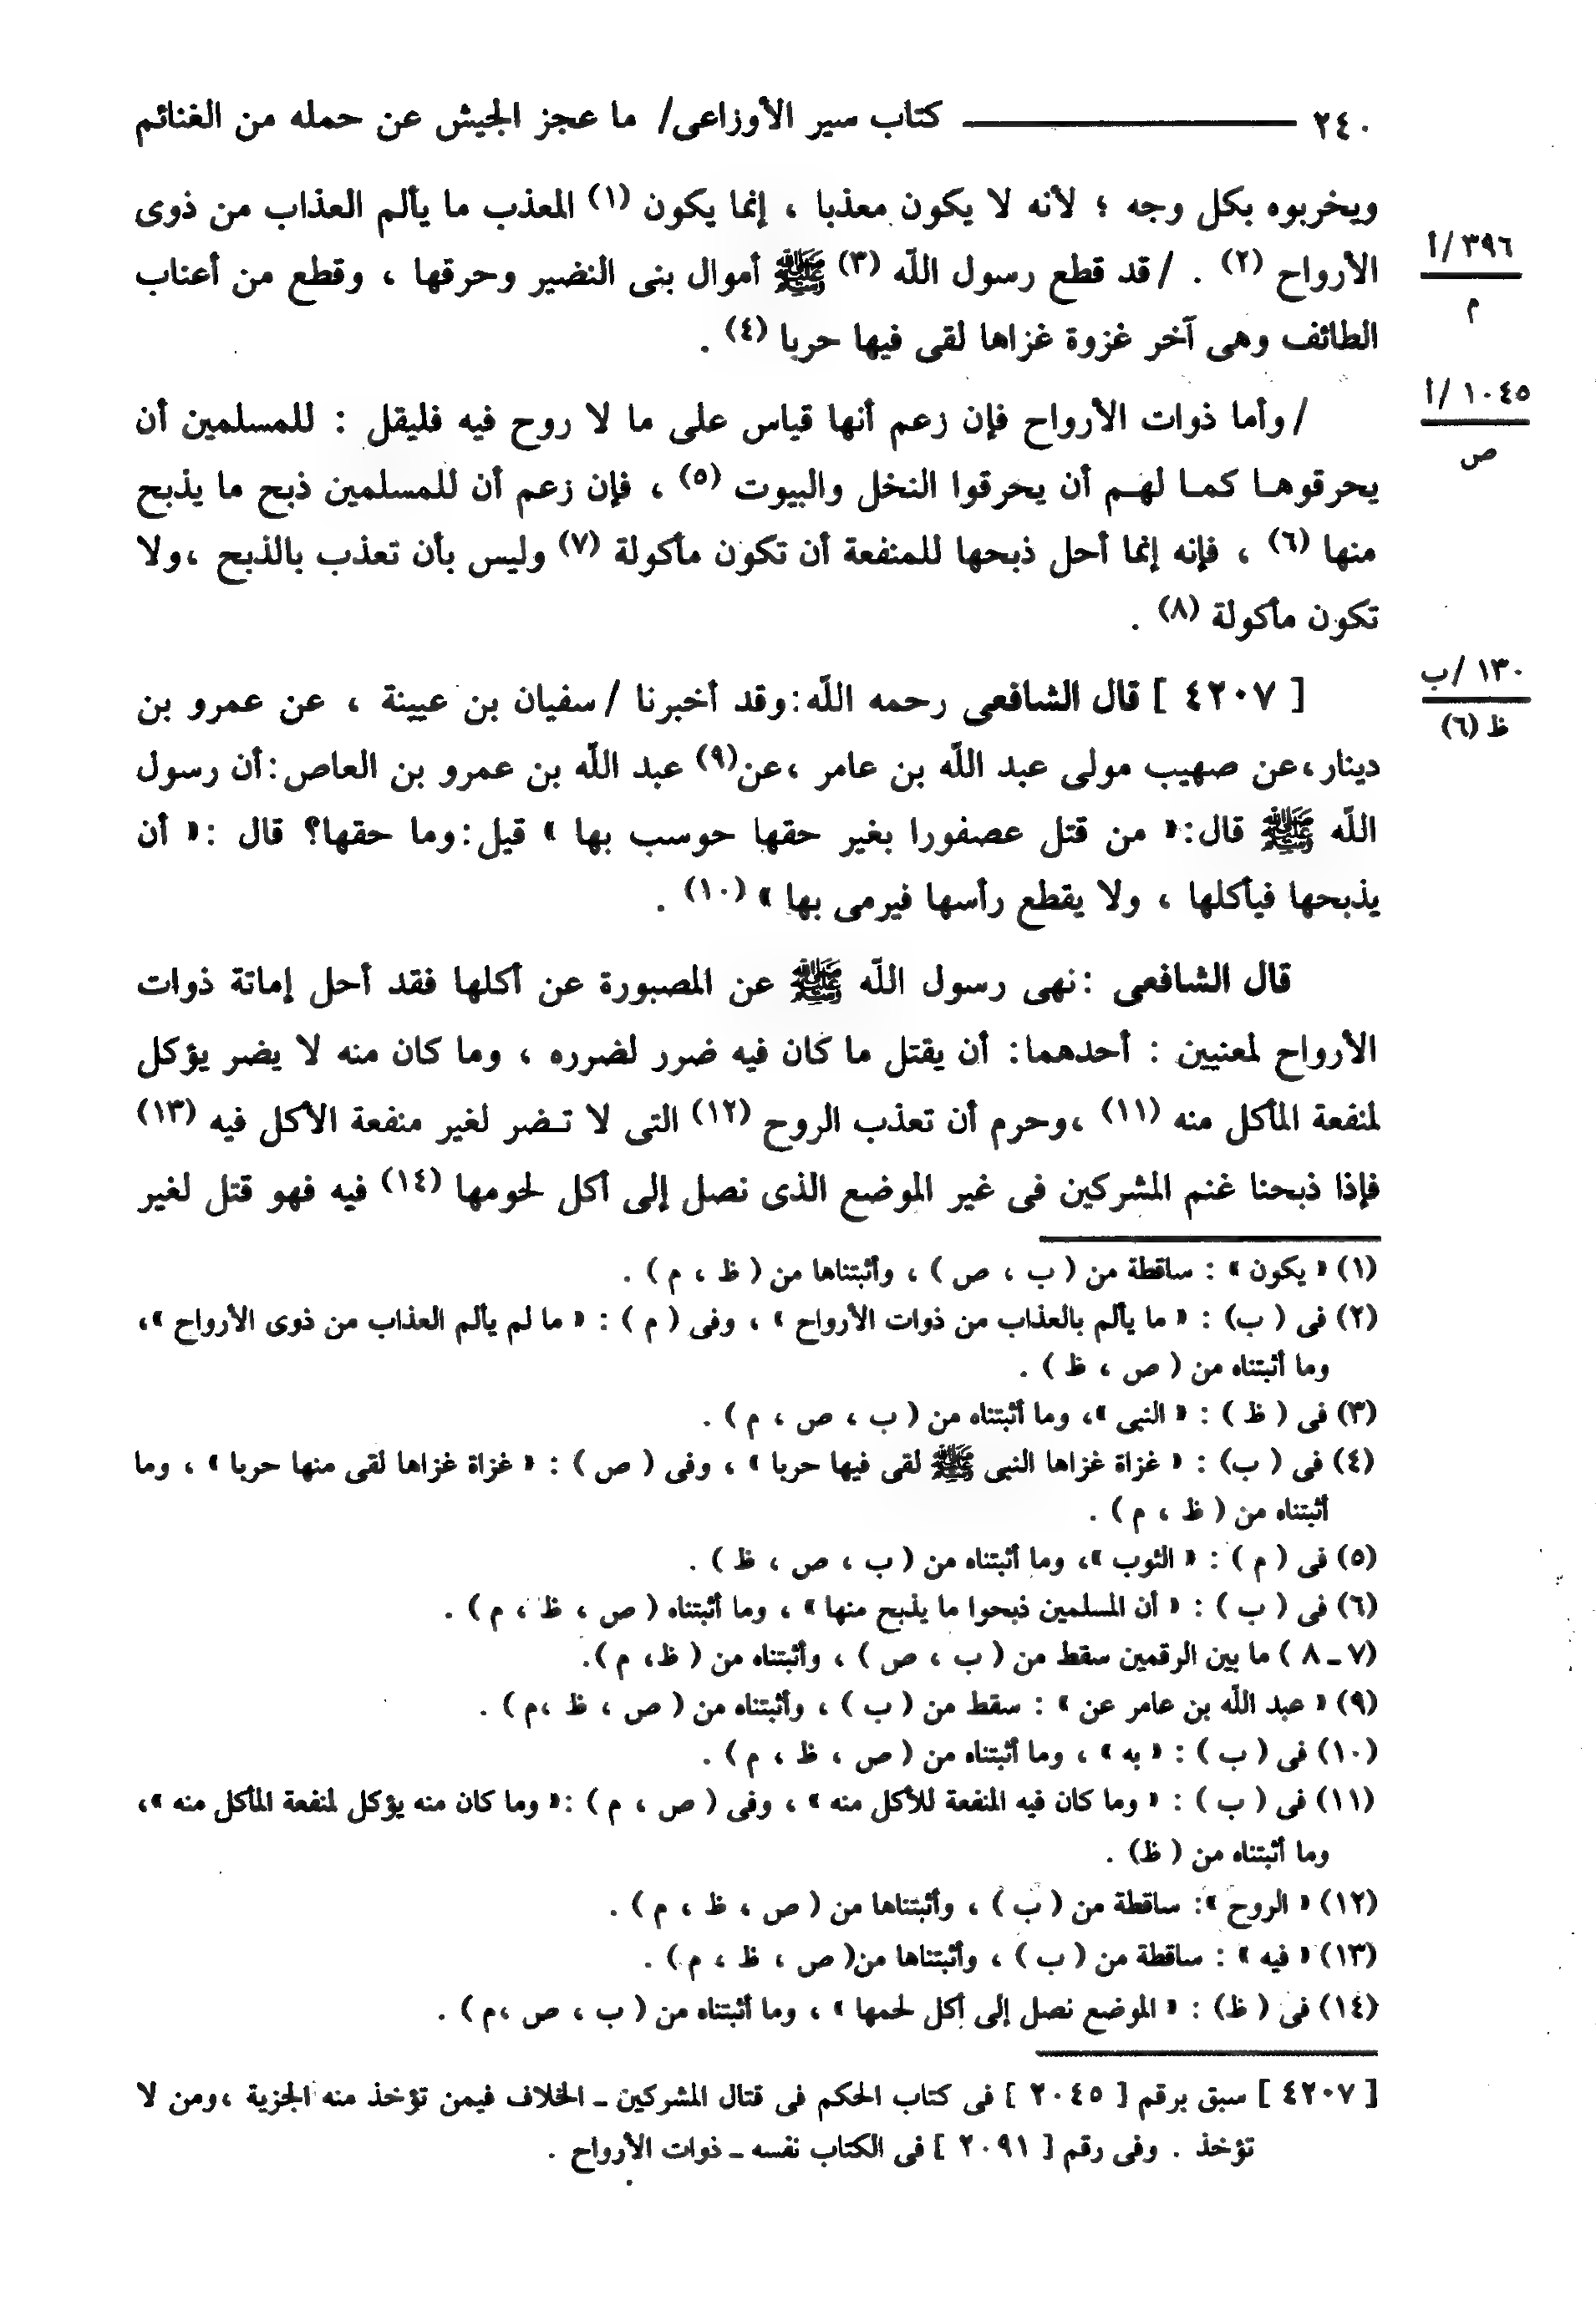 ٢٤٠ ــــــــ كتاب سير الأوزاعى/ ما عجز الجيش عن حمله من الغنائم
ويخربوه بكل وجه ؛ لأنه لا يكون معذبا ، إنما يكون (١) المعذب ما يألم العذاب من ذوى
٣٩٦/أ
م
الأرواح (٢) . /قد قطع رسول اللّه (٣) ﷺ أموال بنى النضير وحرقها ، وقطع من أعناب
الطائف وهى آخر غزوة غزاها لقى فيها حربا (٤) .
١٠٤٥/أ
ص
/وأما ذوات الأرواح فإن زعم أنها قياس على ما لا روح فيه فليقل : للمسلمين أن
يحرقوهـا كمـا لهـم أن يحرقوا النخل والبيوت (٥) ، فإن زعم أن للمسلمين ذبح ما يذبح
منها (٦) ، فإنه إنما أحل ذبحها للمنفعة أن تكون مأكولة (٧) وليس بأن تعذب بالذبح ،ولا
تكون مأكولة (٨) .
١٣٠/ب
ظ (٦)
[ ٤٢٠٧ ] قال الشافعى رحمه اللّه:وقد أخبرنا /سفيان بن عيينة ، عن عمرو بن
دينار،عن صهيب مولى عبد اللّه بن عامر ،عن(٩) عبد اللّه بن عمرو بن العاص:أن رسول
اللّه ﷺ قال:« من قتل عصفورا بغير حقها حوسب بها » قيل:وما حقها؟ قال :« أن
يذبحها فيأكلها ، ولا يقطع رأسها فيرمى بها » (١٠) .
قال الشافعى :نهى رسول اللّه ﷺ عن المصبورة عن أكلها فقد أحل إماتة ذوات
الأرواح لمعنيين : أحدهما: أن يقتل ما كان فيه ضرر لضرره ، وما كان منه لا يضر يؤكل
لمنفعة المأكل منه (١١) ،وحرم أن تعذب الروح (١٢) التى لا تـضر لغير منفعة الأكل فيه (١٣)
فإذا ذبحنا غنم المشركين فى غير الموضع الذى نصل إلى أكل لحومها (١٤) فيه فهو قتل لغير
(١) « يكون » : ساقطة من ( ب ، ص ) ، وأثبتناها من ( ظ ، م ) .
(٢) فى ( ب) : « ما يألم بالعذاب من ذوات الأرواح » ، وفى ( م ) : « ما لم يألم العذاب من ذوى الأرواح »،
وما أثبتناه من ( ص ، ظ ) .
(٣) فى ( ظ ) : « النبى »، وما أثبتناه من ( ب ، ص ، م ) .
(٤) فى ( ب) : « غزاة غزاها النبى ﷺ لقى فيها حربا » ، وفى ( ص ) : « غزاة غزاها لقى منها حربا » ، وما
أثبتناه من ( ظ ، م ) .
(٥) فى ( م ) : « الثوب »، وما أثبتناه من ( ب ، ص ، ظ ) .
(٦) فى ( ب ) : « أن المسلمين ذبحوا ما يذبح منها » ، وما أثبتناه ( ص ، ظ ، م ) .
(٧ ـ ٨ ) ما بين الرقمين سقط من ( ب ، ص ) ، وأثبتناه من ( ظ، م ).
(٩) « عبد اللّه بن عامر عن » : سقط من ( ب ) ، وأثبتناه من ( ص ، ظ ،م ) .
(١٠) فى ( ب ) : « به » ، وما أثبتناه من ( ص ، ظ ، م ) .
(١١) فى ( ب ) : « وما كان فيه المنفعة للأكل منه » ، وفى ( ص ، م ) :« وما كان منه يؤكل لمنفعة المأكل منه »،
وما أثبتناه من ( ظ) .
(١٢) « الروح »: ساقطة من ( ب ) ، وأثبتناها من ( ص ، ظ ، م ) .
(١٣) « فيه » : ساقطة من ( ب ) ، وأثبتناها من( ص ، ظ ، م ) .
(١٤) فى ( ظ) : « الموضع نصل إلى أكل لحمها » ، وما أثبتناه من ( ب ، ص ،م ) .
[ ٤٢٠٧ ] سبق برقم [ ٢٠٤٥ ] فى كتاب الحكم فى قتال المشركين ـ الخلاف فيمن تؤخذ منه الجزية ،ومن لا
تؤخذ . وفى رقم [ ٢٠٩١ ] فى الكتاب نفسه ـ ذوات الأرواح .